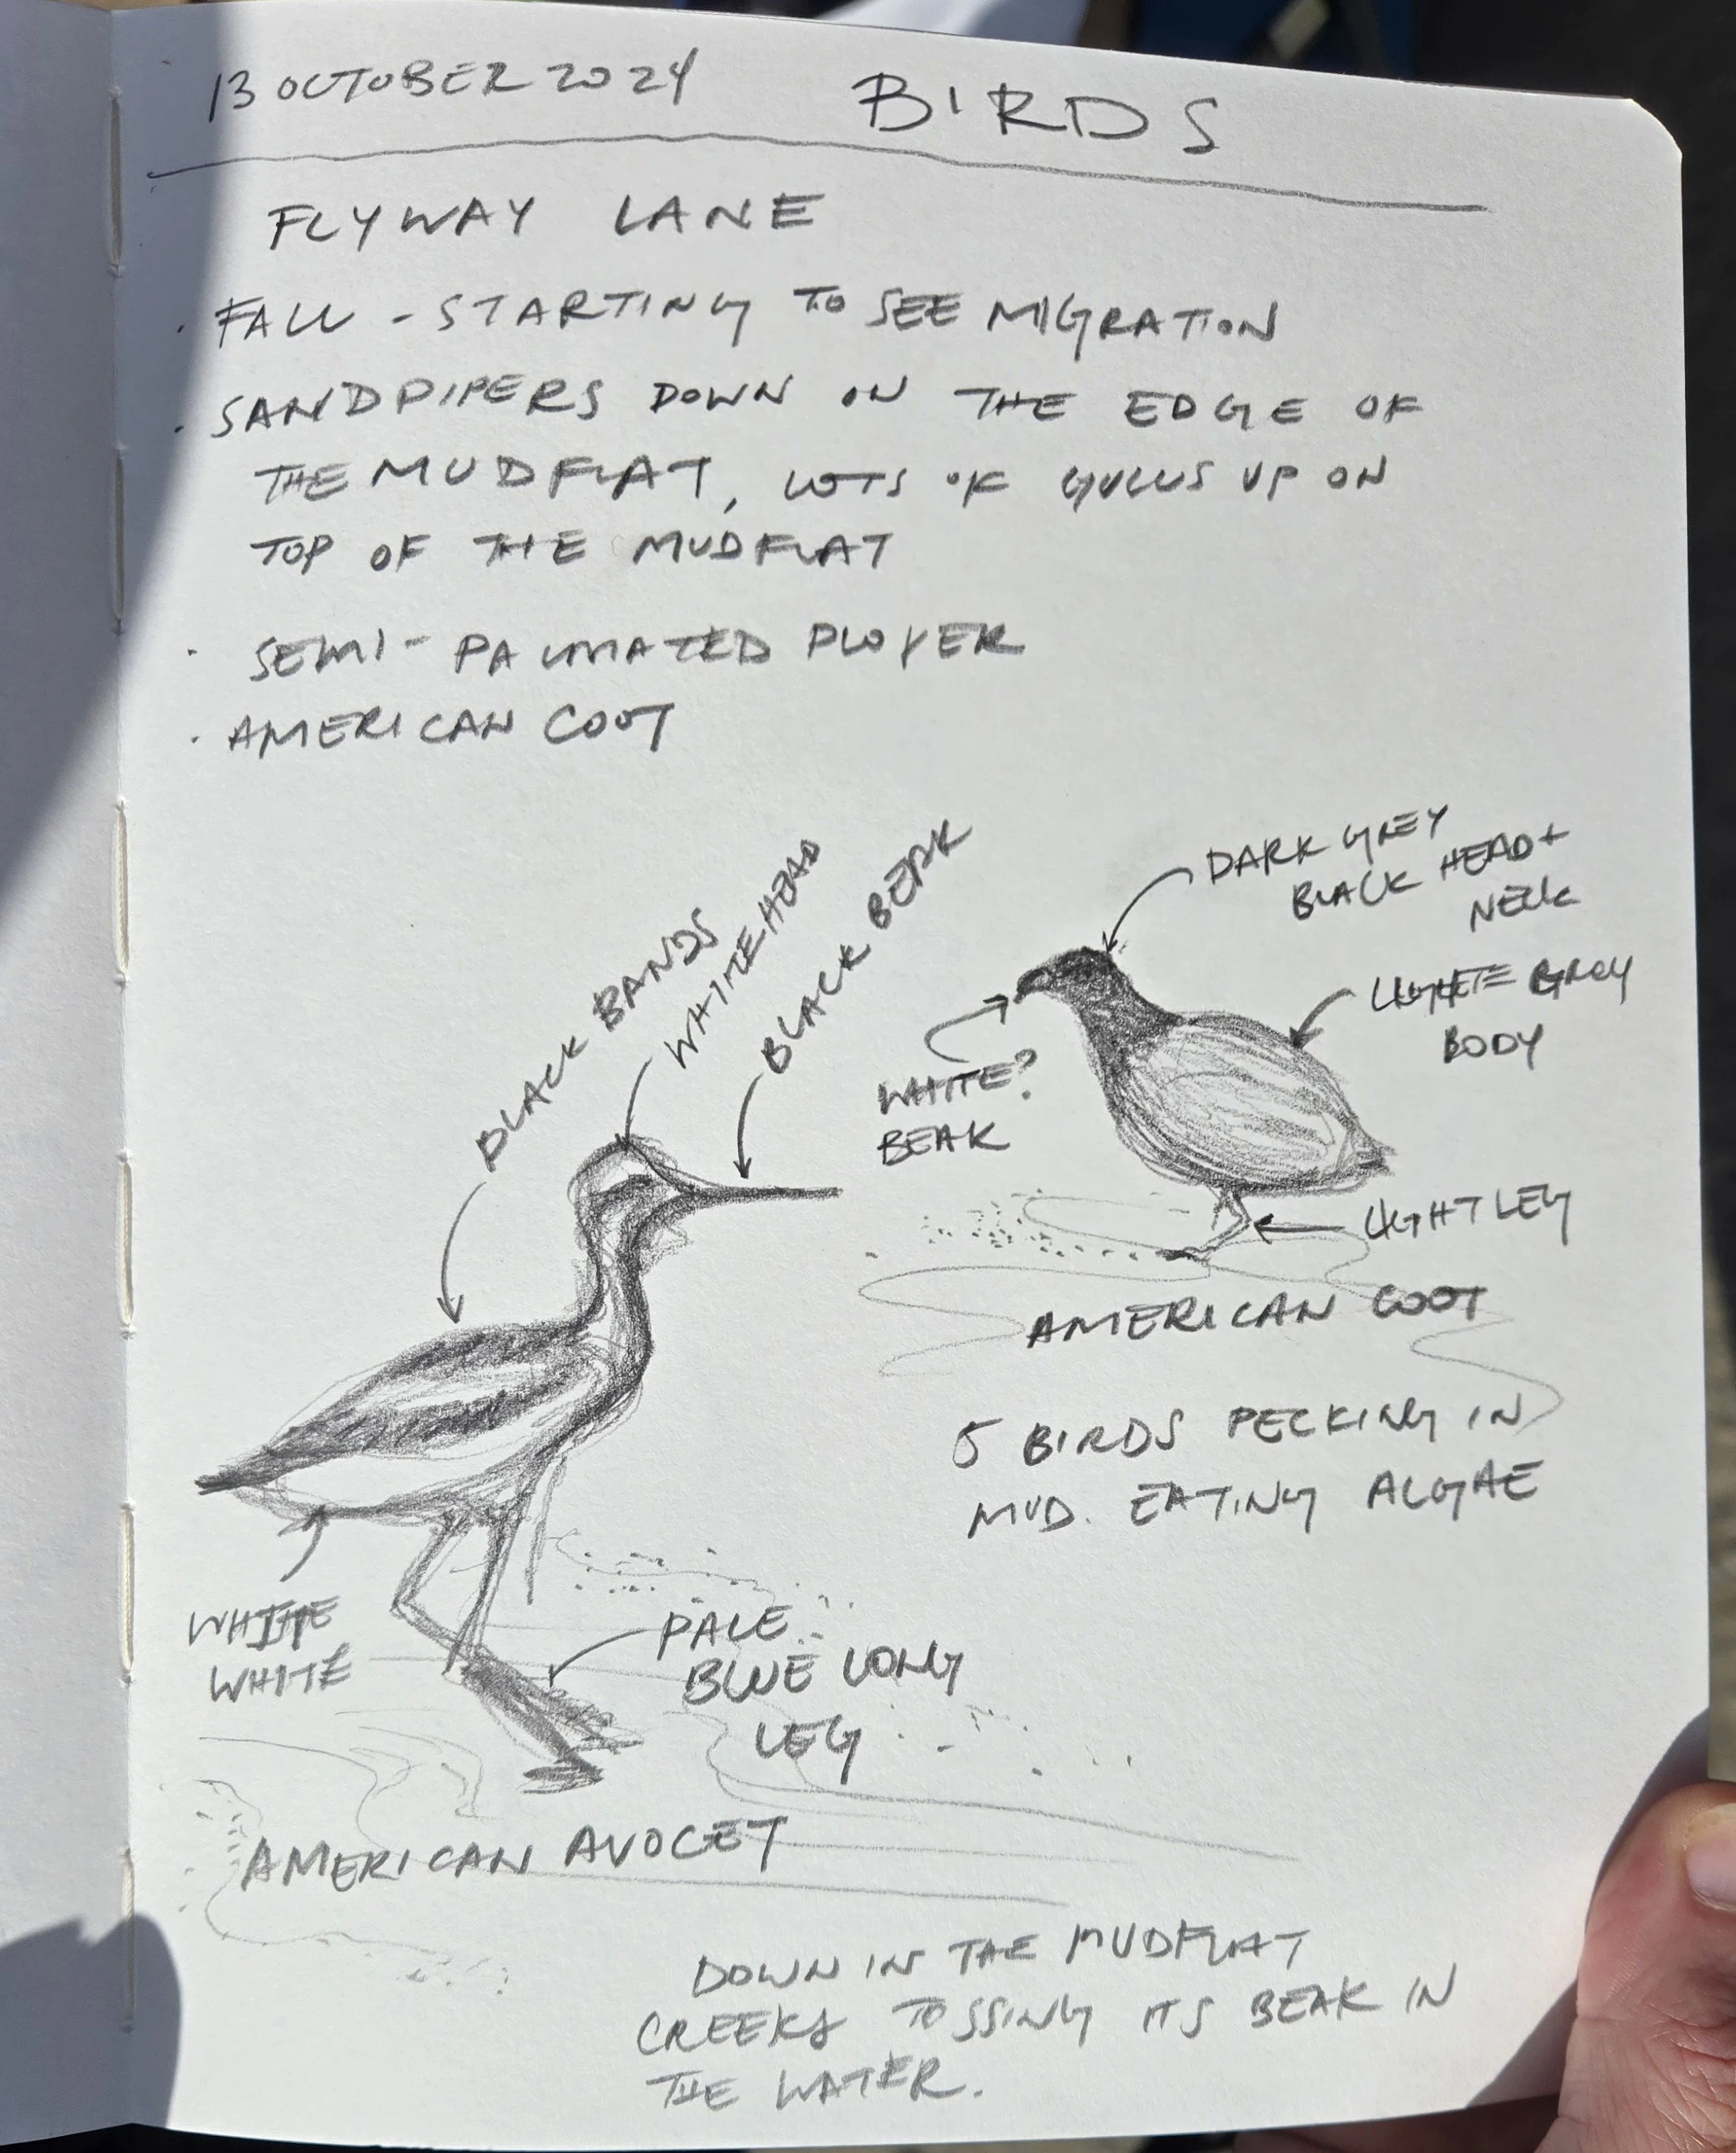 13 OCTOBER 2024
BIRDS
FLYWAY LANE
· FALL - STARTING TO SEE MIGRATION
· SANDPIPERS DOWN ON THE EDGE OF
THE MUDFLAT, LOTS OF GULLS UP ON
TOP OF THE MUDFLAT
· SEMI-PALMATED PLOVER
· AMERICAN COOT
BLACK BANDS
WHITE HEAD
BLACK BEAK
DARK GREY
BLACK HEAD +
NECK
WHITE?
BEAK
LIGHTE GREY
BODY
LIGHT LEG
AMERICAN COOT
5 BIRDS PECKING IN
MUD. EATING ALGAE
WHITE
WHITE
PALE
BLUE LONG
LEG
AMERICAN AVOCET
DOWN IN THE MUDFLAT
CREEKS TOSSING ITS BEAK IN
THE WATER.